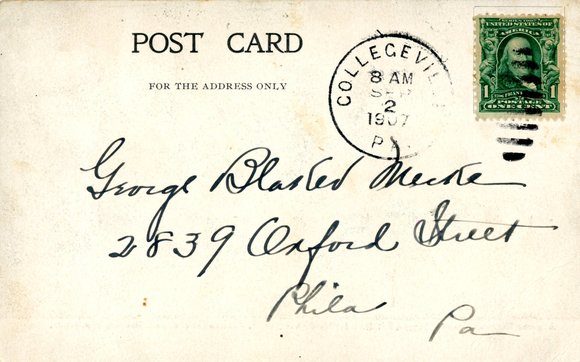 POST CARD
FOR THE ADDRESS ONLY
COLLEGEVILL
8 AM
SEP
2
1907
PA.
SERIES 1902
UNITED STATES OF
AMERICA
1 1
POSTAGE
ONE CENT
George
2839 Oxford Street
Phila Pa